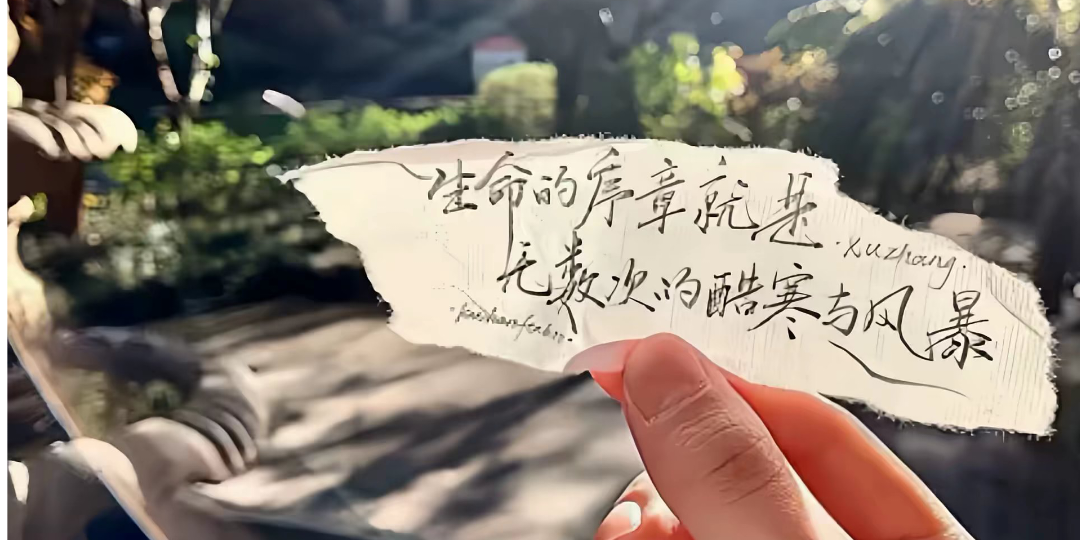 生命的序章就是
·xuzhang.
无数次的酷寒与风暴